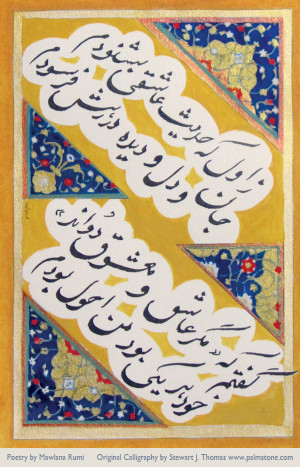 زاول که حدیث عاشقی بشنودم
جان و دل و دیده در رهش فرسودم
گفتم که «مگر عاشق و معشوق دواند»
خود هر دو یکی بود من احول بودم
Poetry by Mawlana Rumi Original Calligraphy by Stewart J. Thomas www.palmstone.com